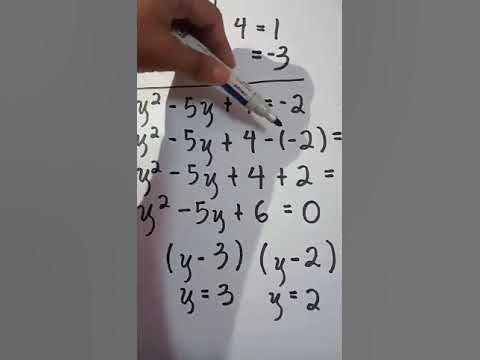 4 = 1
= -3
y² - 5y + = -2
y² - 5y + 4 - (-2) =
y² - 5y + 4 + 2 =
y² - 5y + 6 = 0
(y - 3) (y - 2)
y = 3 y = 2